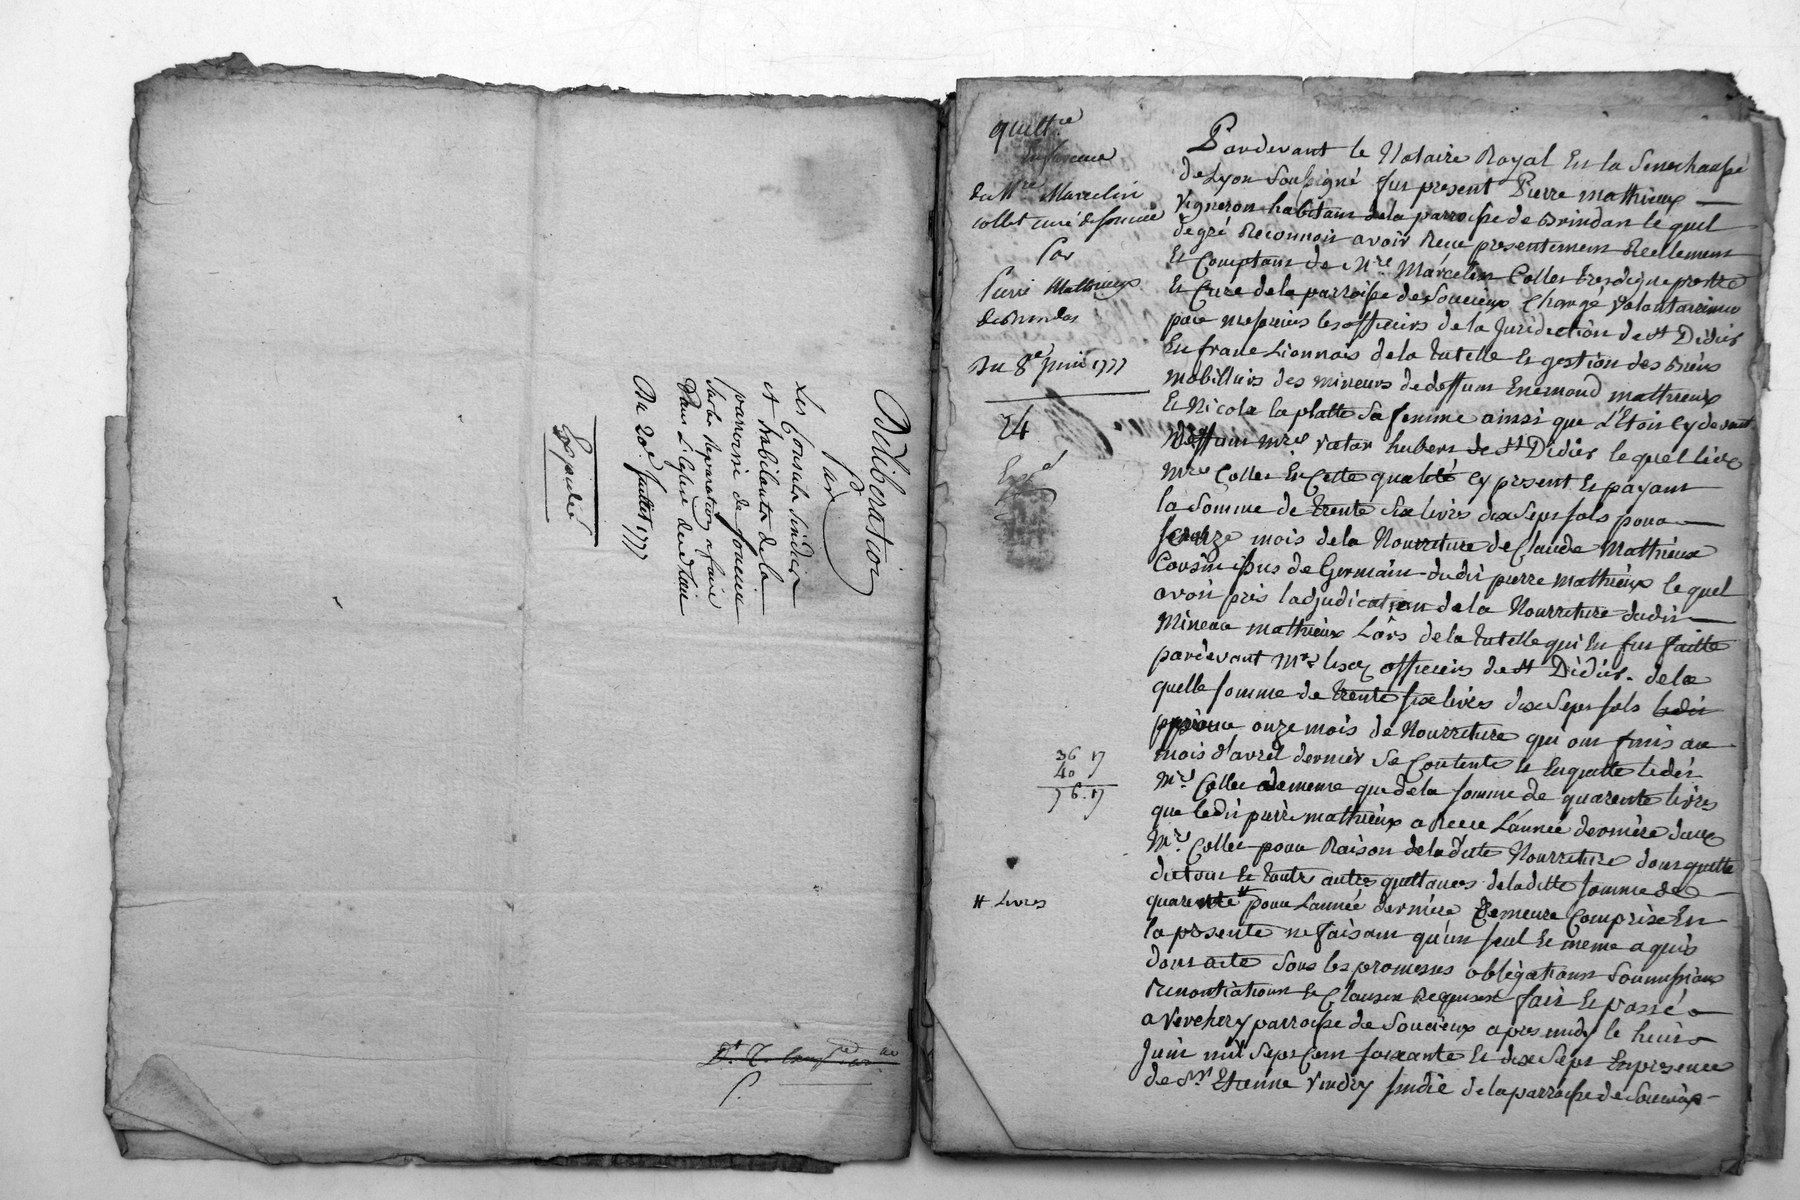 Deliberation
Par
Les Consuls Sindics
et habitants de la
parroisse de soucieu
sur les Reparations a faire
dans L'eglise dud lieu
Du 20e. Juillet 1777
Expedié
quittce
en faveur
de Mre Marcelin
collet curé de soucieu
Par
Pierre Mathieux
de Brindas
Du 8e Juin 1777
24
36 17
40
76.17
# Livres
Pardevant le Notaire Royal En la Senechaussé
de Lyon Soussigné fut present Pierre mathieux
vigneron habitant de la parroisse de Brindas le quel
de gré Reconnoit avoir Receu presentement Reellement
Et Comptant de Mre Marcelin Collet tresdigne prestre
Et Curé de la parroisse de Soucieux Chargé volontairement
par messieurs les officiers de la Juridiction de st Didier
En franc Lionnois de la tutelle Et gestion des Biens
mobilliers des mineurs de deffunt Enemond mathieux
Et Nicole la platte sa femme ainsi que L'Etoit cy devant
deffunt mre hubert de st Didier le quel dit
mre Collet En Cette qualité cy present Et payant
la Somme de trente Six livres dix Sept sols pour
onze mois de la Nourriture de Claude Mathieux
Cousin issus de Germain dudit pierre mathieux le quel
avoit pris ladjudication de la Nourriture dudit
Mineur mathieux Lors de la tutelle qui En fut faitte
pardevant Mrs les officiers de st Didier. de la
quelle somme de trente six livres dix Sept sols ledit
pour onze mois de Nourriture qui ont finis au
mois d'avril dernier Se Contente Et En quitte ledit
Mre Collet de meme que de la somme de quarente livres
que ledit pierre mathieux a Receu L'année derniere dud
Mre Collet pour Raison de ladite Nourriture dont quitte
du tout Et toute autres quittances de laditte somme de
quarente # pour L'année derniere Demeure Comprise En
la presente ne faisant qu'un seul Et meme aquis
dont acte Sous les promesses obligations Soumissions
renontiations Et Clauses Requises fait Et passé
a Verchery parroisse de Soucieux apres midy le huit
Juin mil Sept Cent soixante Et dix Sept En presence
de Sr Etienne Vindry sindic de la parroisse de Soucieux